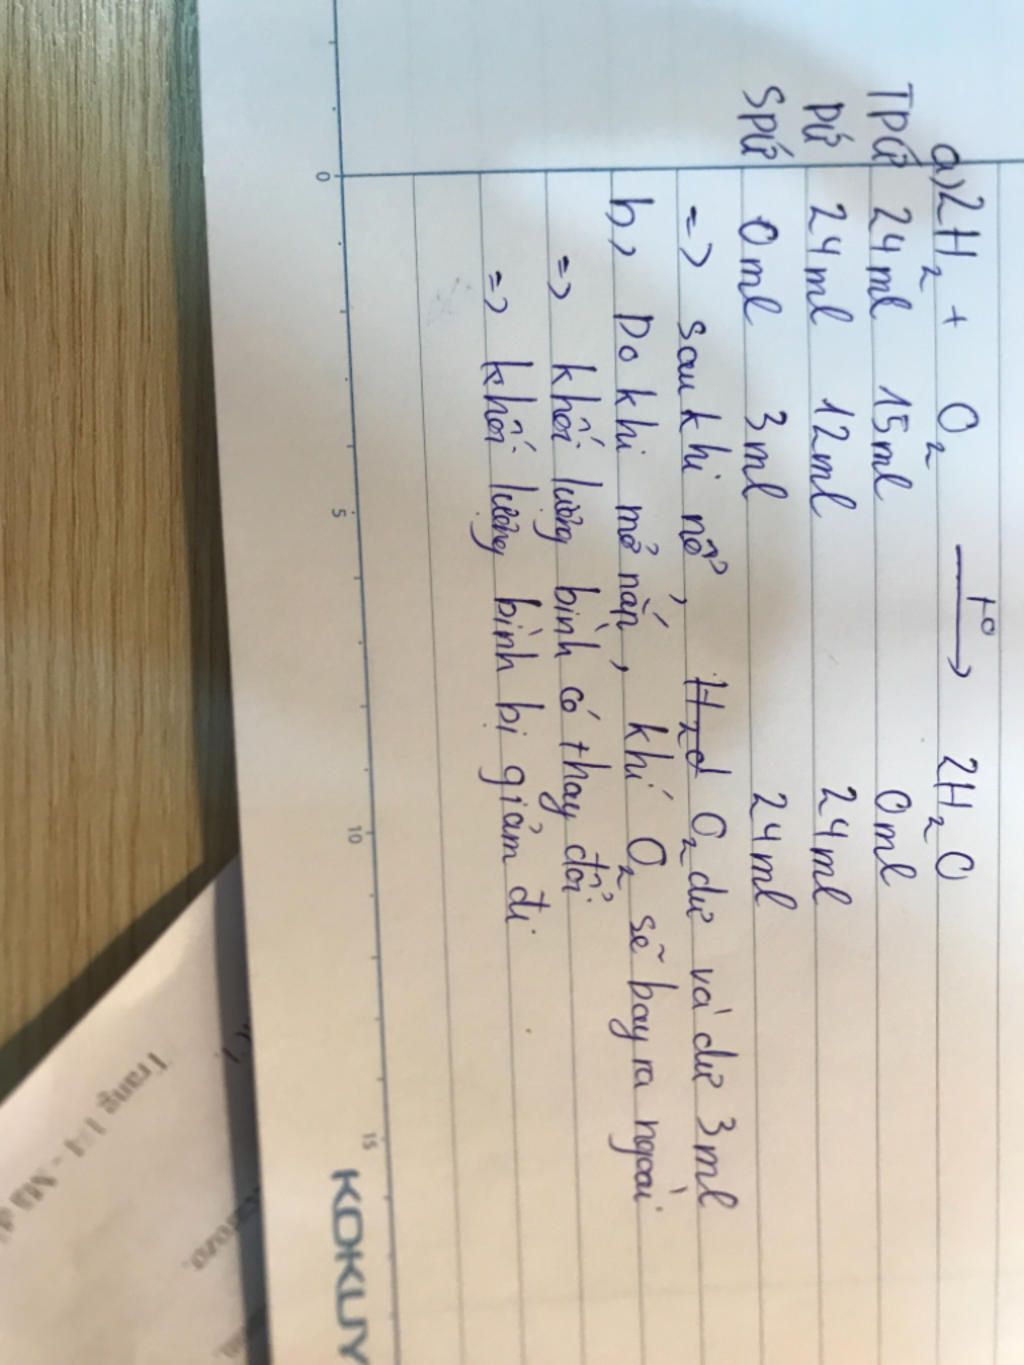 a) 2H₂ + O₂ —t°→ 2H₂O
TPƯ 24ml 15ml 0ml
PƯ 24ml 12ml 24ml
SPƯ 0ml 3ml 24ml
=> sau khi nổ, O₂ dư và dư 3ml
b) Do khi mở nắp, khí O₂ sẽ bay ra ngoài
=> khối lượng bình có thay đổi
=> khối lượng bình bị giảm đi
0 5 10 15
KOKUY
Trang 1/1 - Mã